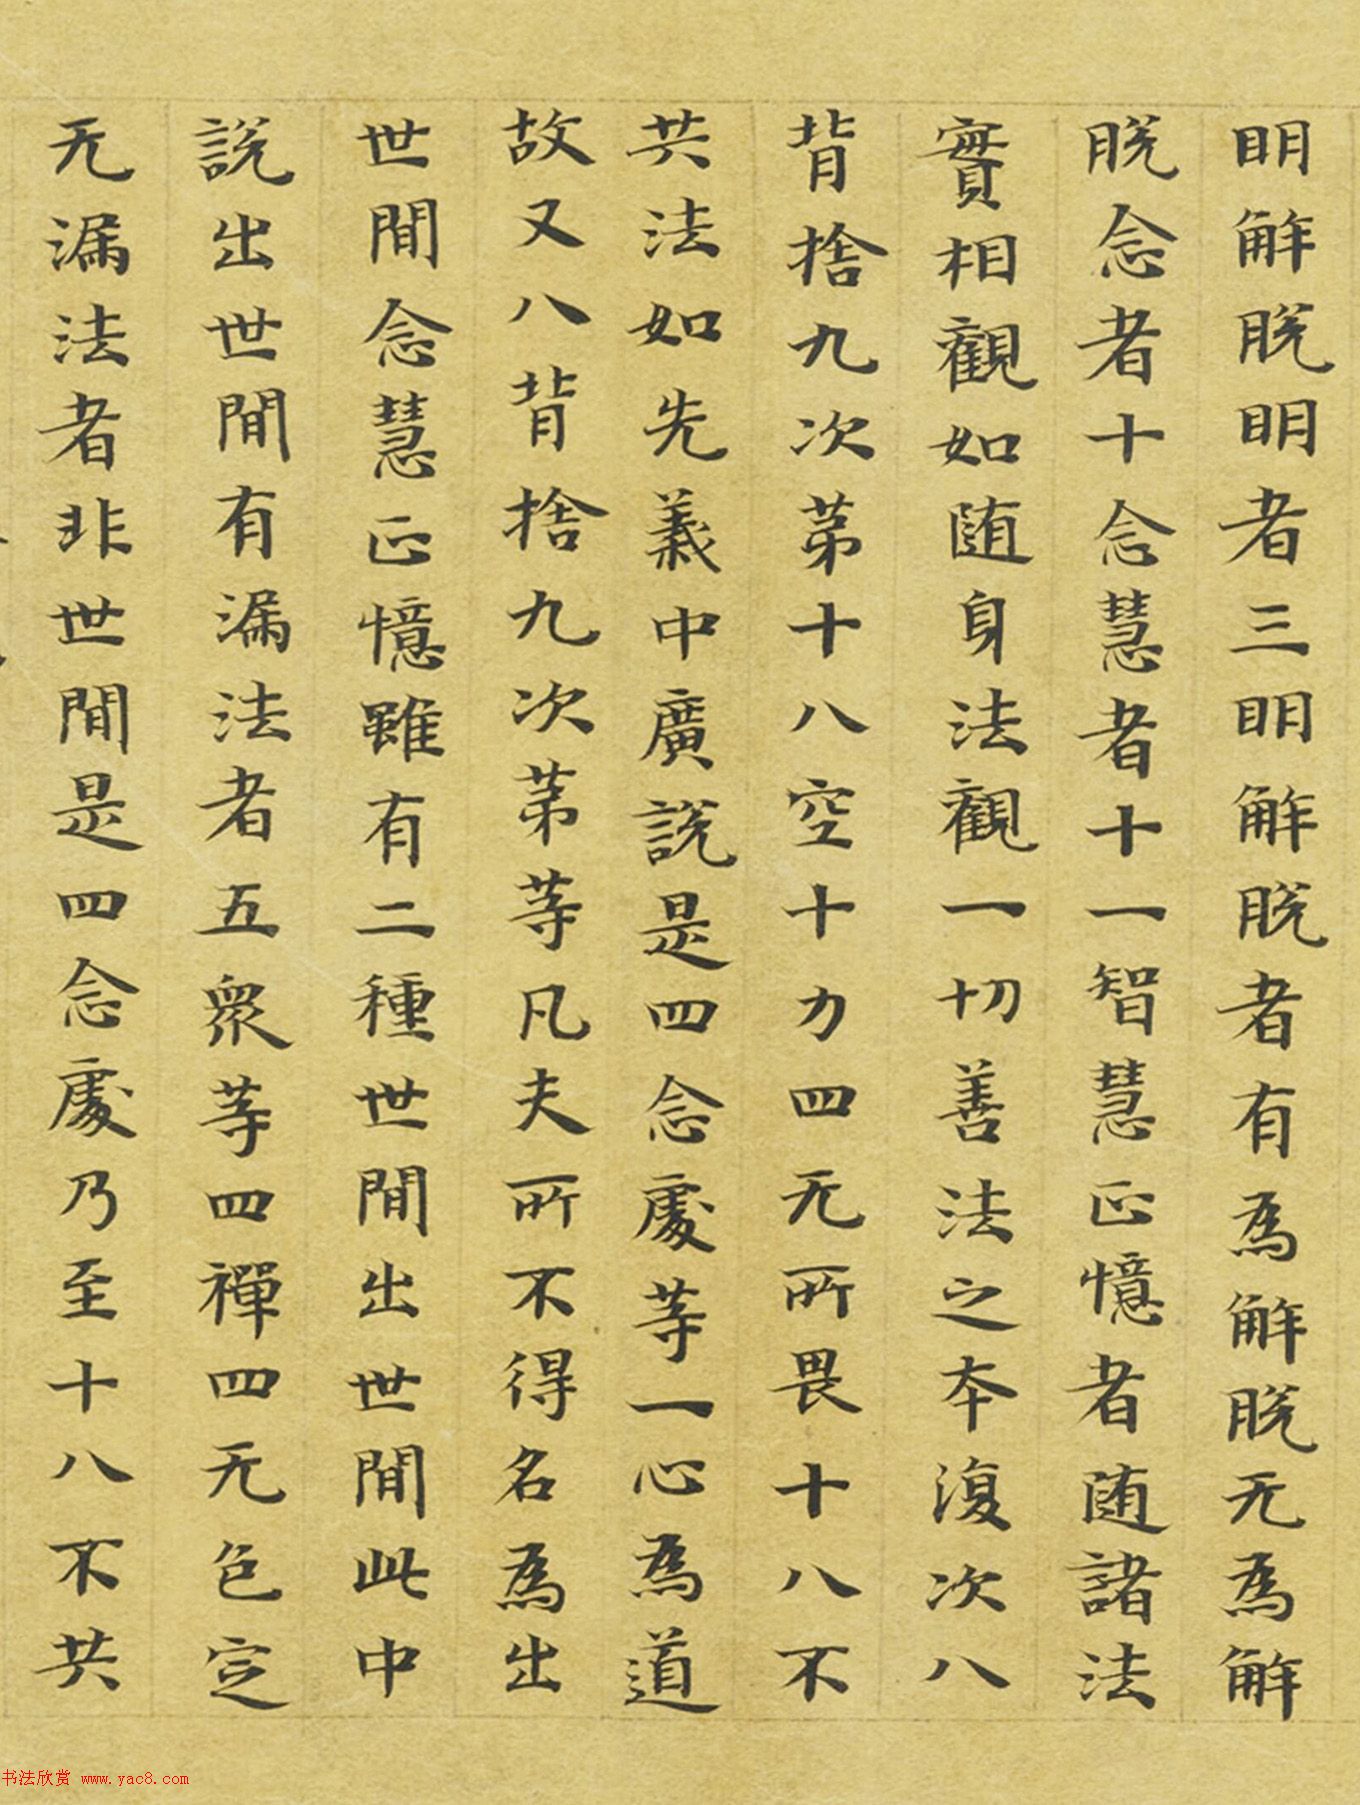 明解脱明者三明解脱者有為解脱无為解
脱念者十念慧者十一智慧正憶者随諸法
實相觀如随身法觀一切善法之本復次八
背捨九次苐十八空十力四无所畏十八不
共法如先義中廣說是四念處等一心為道
故又八背捨九次苐等凡夫所不得名為出
世間念慧正憶雖有二種世間出世間此中
說出世間有漏法者五衆等四禪四无色定
无漏法者非世間是四念處乃至十八不共
书法欣赏 www.yac8.com